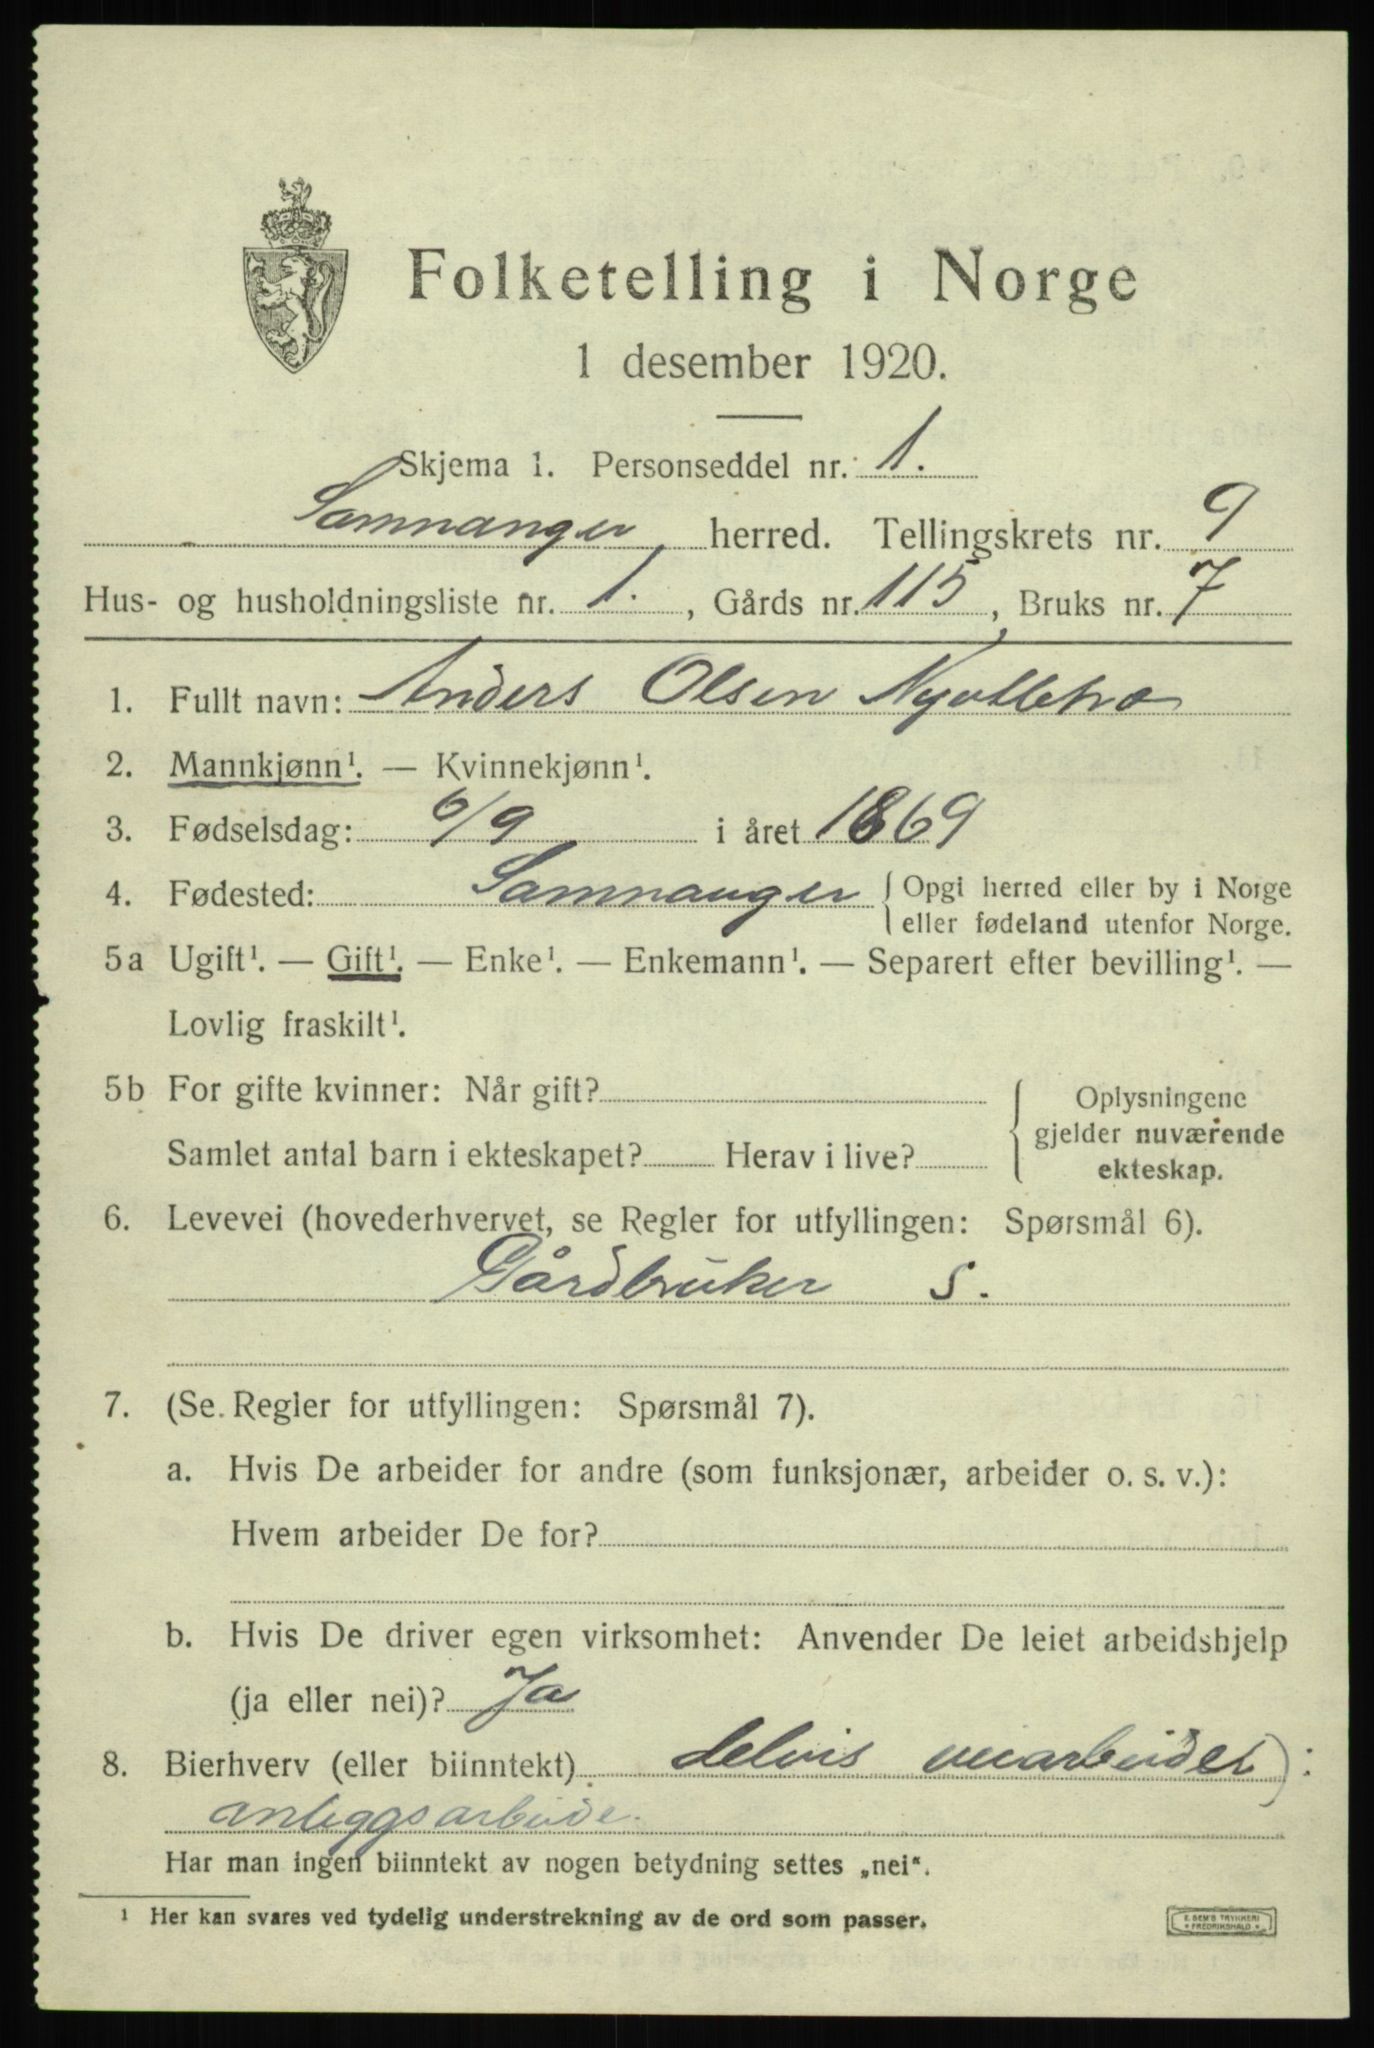 Folketelling i Norge
1 desember 1920.
Skjema 1. Personseddel nr. 1.
Samnanger herred. Tellingskrets nr. 9
Hus- og husholdningsliste nr. 1. , Gårds nr. 115, Bruks nr. 7
1. Fullt navn: Anders Olsen
2. Mannkjønn¹. — Kvinnekjønn¹.
3. Fødselsdag: 6/9 i året 1869
4. Fødested: Samnanger { Opgi herred eller by i Norge
eller fødeland utenfor Norge.
5a Ugift¹. — Gift¹. — Enke¹. — Enkemann¹. — Separert efter bevilling¹. —
Lovlig fraskilt¹.
5b For gifte kvinner: Når gift?
Samlet antal barn i ekteskapet? Herav i live?
{ Oplysningene
gjelder nuværende
ekteskap.
6. Levevei (hovederhvervet, se Regler for utfyllingen: Spørsmål 6).
Gårdbruker S.
7. (Se Regler for utfyllingen: Spørsmål 7).
a. Hvis De arbeider for andre (som funksjonær, arbeider o. s. v.):
Hvem arbeider De for?
b. Hvis De driver egen virksomhet: Anvender De leiet arbeidshjelp
(ja eller nei)? Ja
8. Bierhverv (eller biinntekt) delvis veiarbeider):
anleggsarbeide.
Har man ingen biinntekt av nogen betydning settes „nei“.
¹ Her kan svares ved tydelig understrekning av de ord som passer.
E. SEM'S TRYKKERI
FREDRIKSHALD